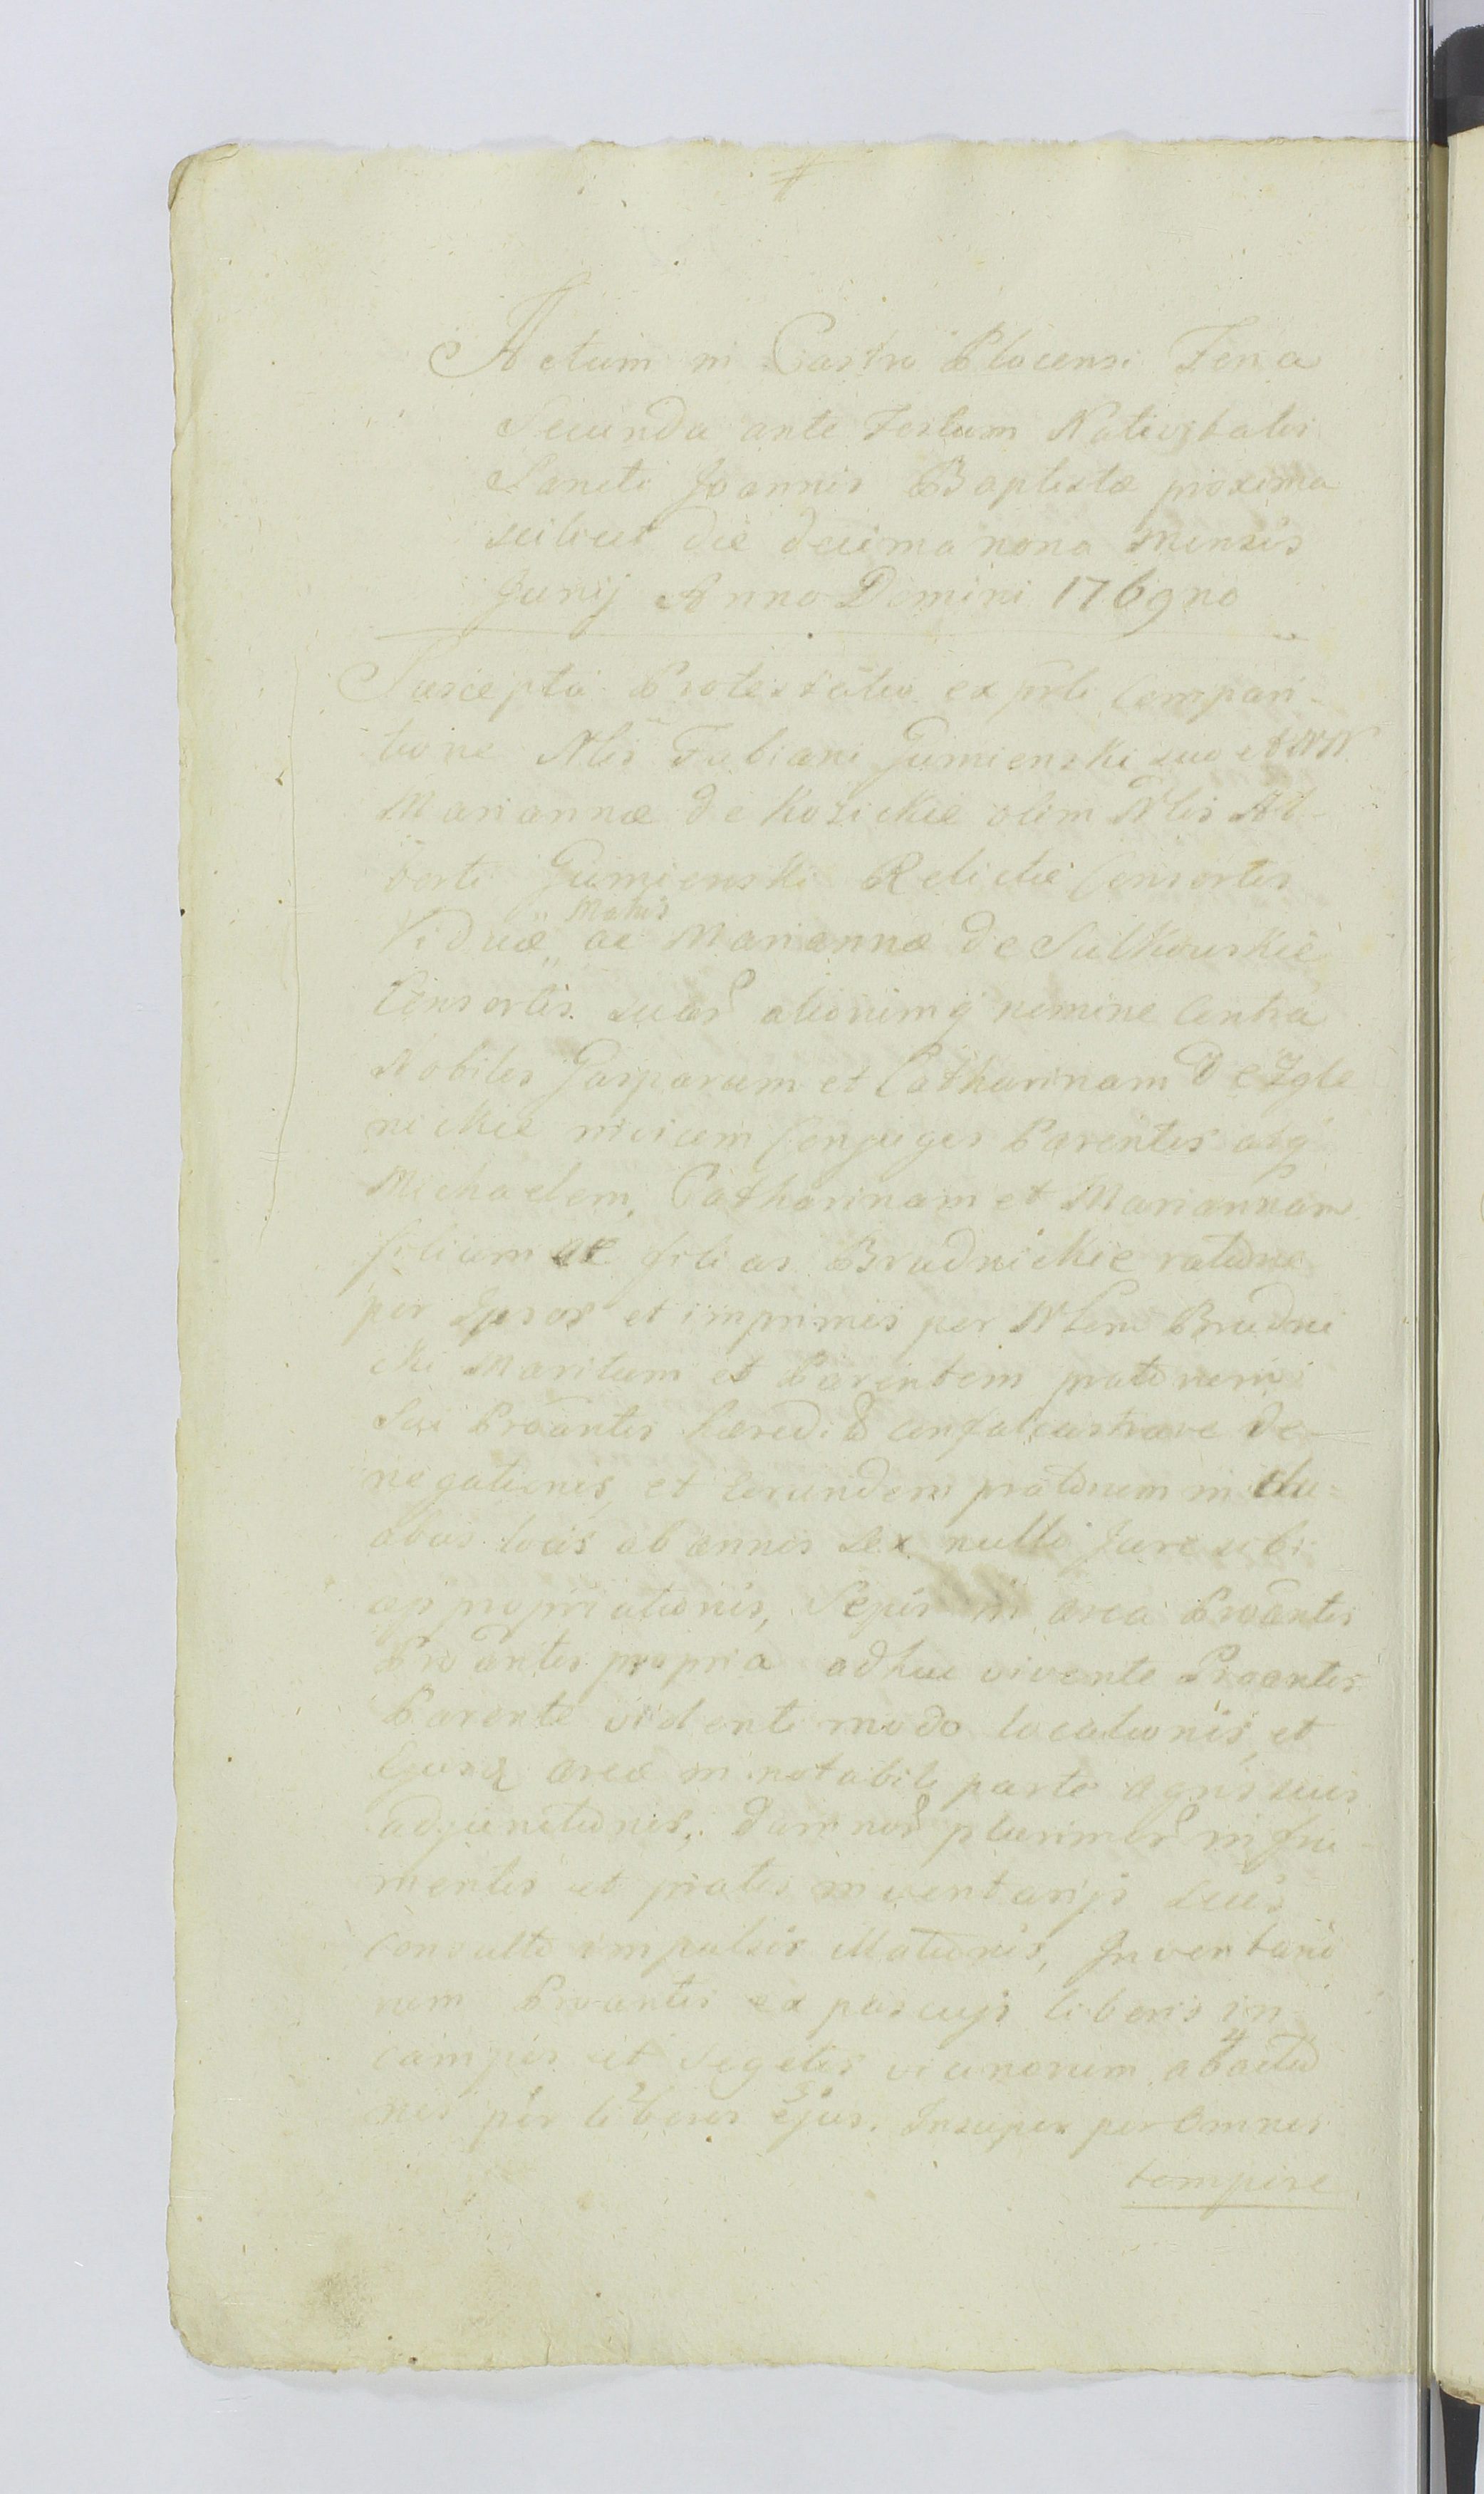 Actum in Castro Plocensi Feria
Secunda ante Festum Nativitatis
Sancti Joannis Baptistæ proxima
scilicet die decima nona mensis
Junij Anno Domini 1769no
Suscepta Protestatio ex prti Compari-
tione Nlis Fabiani Gumienski suo et NN.
Mariannæ de Kozickie olim Nlis Al-
berti Gumienski Relictæ Consortis
Viduæ Matris ac Mariannæ de Sulkowskie
Consortis suar alionimq nomine Contra
Nobiles Gasparum et Catharinam de Zgle
nickie invicem Conjuges Parentes atq
Michaelem, Catharinam et Mariannam
filium ac filias Brudnickie ratione
per Ipsos et imprimis per Nlem Brudni
cki Maritum et Parentem pratorum
Sui Proantis hæredi confalcastrare de-
negationis, et eorundem pratorum in du-
abus locis ab annis sex nullo Jure sibi
appropriationis, Sepis in area Proantis
Proantis propria adhuc vivente Proantis
Parente videnti modo locationis, et
Ejusq areæ in notabili parte agris suis
adjunctionis, damnor plurimor in fru
mentis et pratis inventarijs suis
consulto impulsis illationis, Inventario
rum Proantis ex pascuis liberis in
campos et segetes vicinorum abactio 4
nis per liberos 2 ejus. 3 Insuper per Omnes
tempore